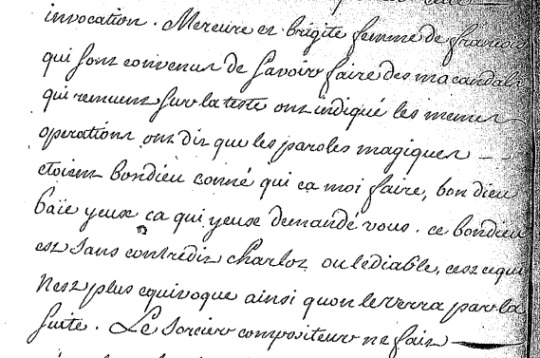 invocation. Mercure et brigite femme de francois
qui sont convenus de savoir faire des macandals
qui remuent sur la teste ont indiqué les memes
operations ont dit que les paroles magiques
etoient bondieu conné qui ca moi faire, bon dieu
baïe yeux ca qui yeux demandé vous. ce bondieu
est sans contredit charlot ou le diable, cest ce qui
n'est plus equivoque ainsi quon le verra par la
suite. Le sorcier compositeur ne fait